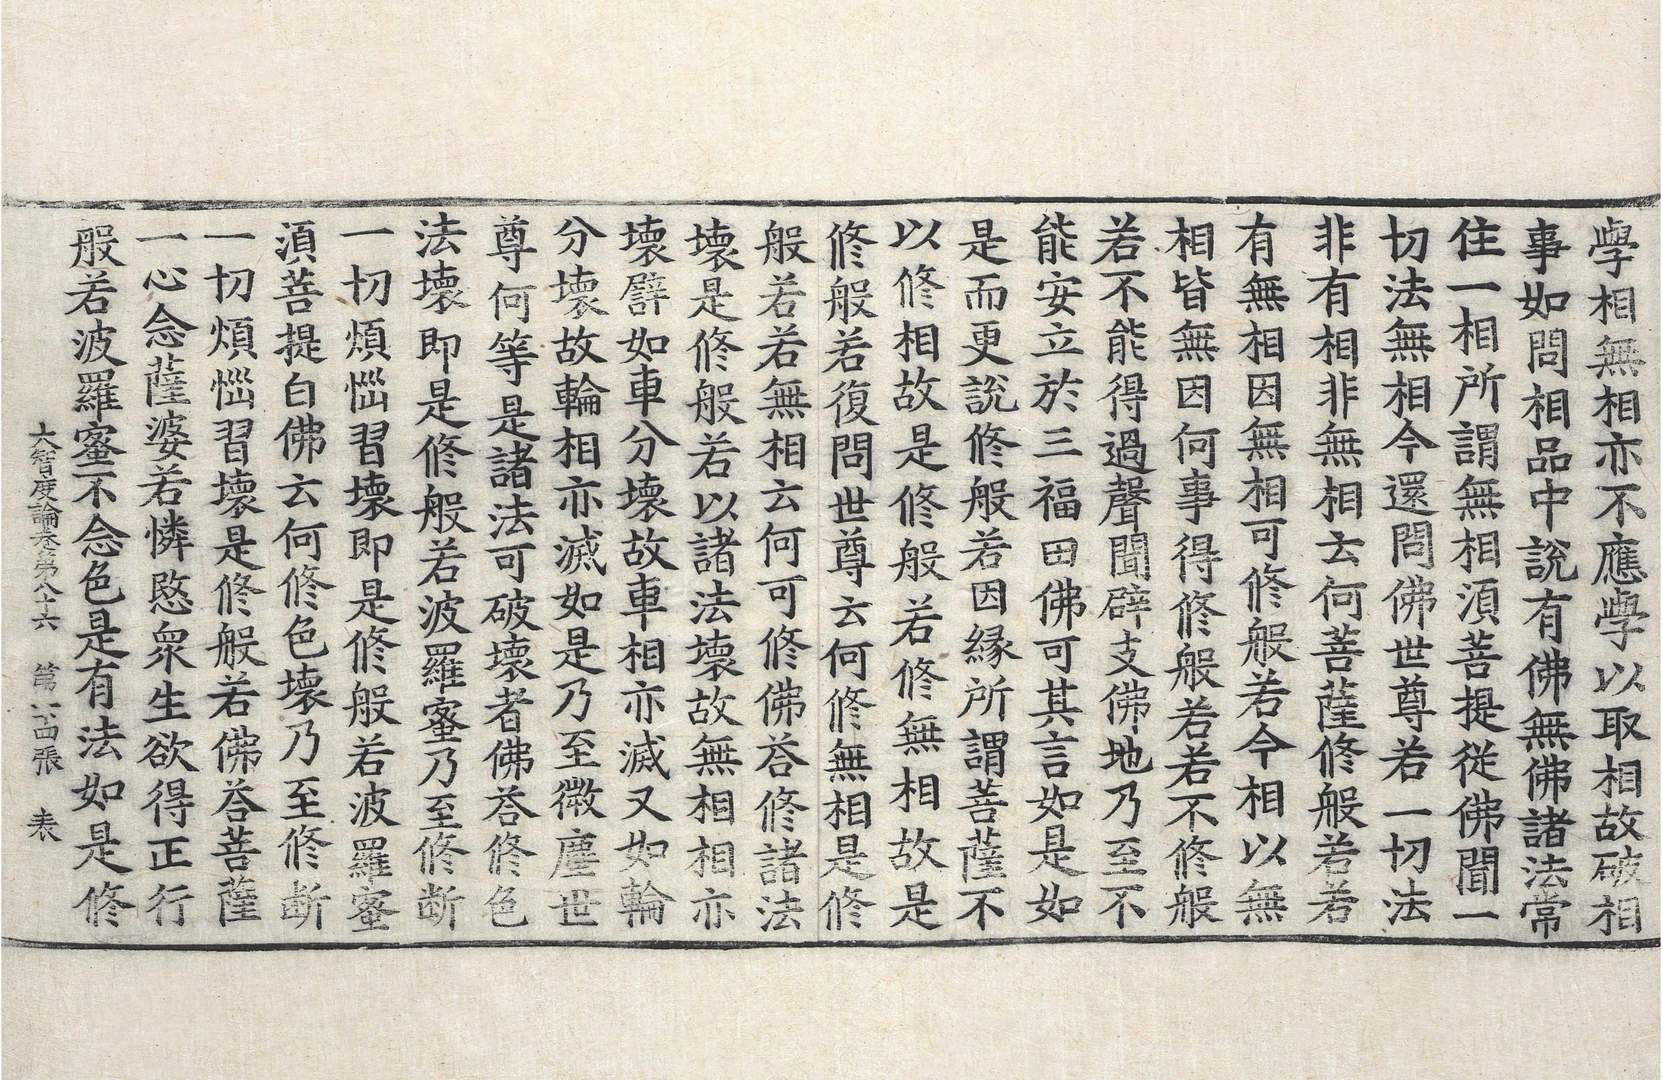 學相無相亦不應學以取相故破相
事如問相品中說有佛無佛諸法常
住一相所謂無相湏菩提從佛聞一
切法無相今還問佛世尊若一切法
非有相非無相云何菩薩修般若若
有無相因無相可修般若今相以無
相皆無因何事得修般若若不修般
若不能得過聲聞辟支佛地乃至不
能安立於三福田佛可其言如是如
是而更說修般若因緣所謂菩薩不
以修相故是修般若修無相故是
修般若復問世尊云何修無相是修
般若若無相云何可修佛荅修諸法
壞是修般若以諸法壞故無相相亦
壞譬如車分壞故車相亦滅又如輪
分壞故輪相亦滅如是乃至微塵世
尊何等是諸法可破壞者佛荅修色
法壞即是修般若波羅蜜乃至修断
一切煩惱習壞即是修般若波羅蜜
湏菩提白佛云何修色壞乃至修断
一切煩惱習壞是修般若佛荅菩薩
一心念薩婆若憐愍衆生欲得正行
般若波羅蜜不念色是有法如是修
大智度論卷第八十六 第 張 表